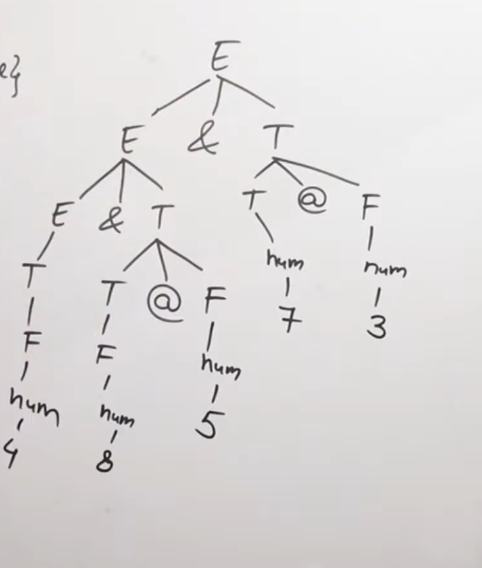 e}
E
E & T
E & T T @ F
T T @ F num num
F F num 7 3
num num 5
4 8